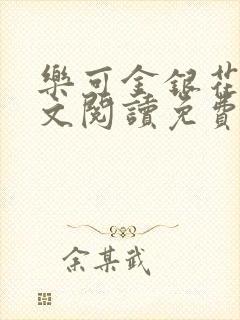 樂可金銀花
文閱讀免費
余某武